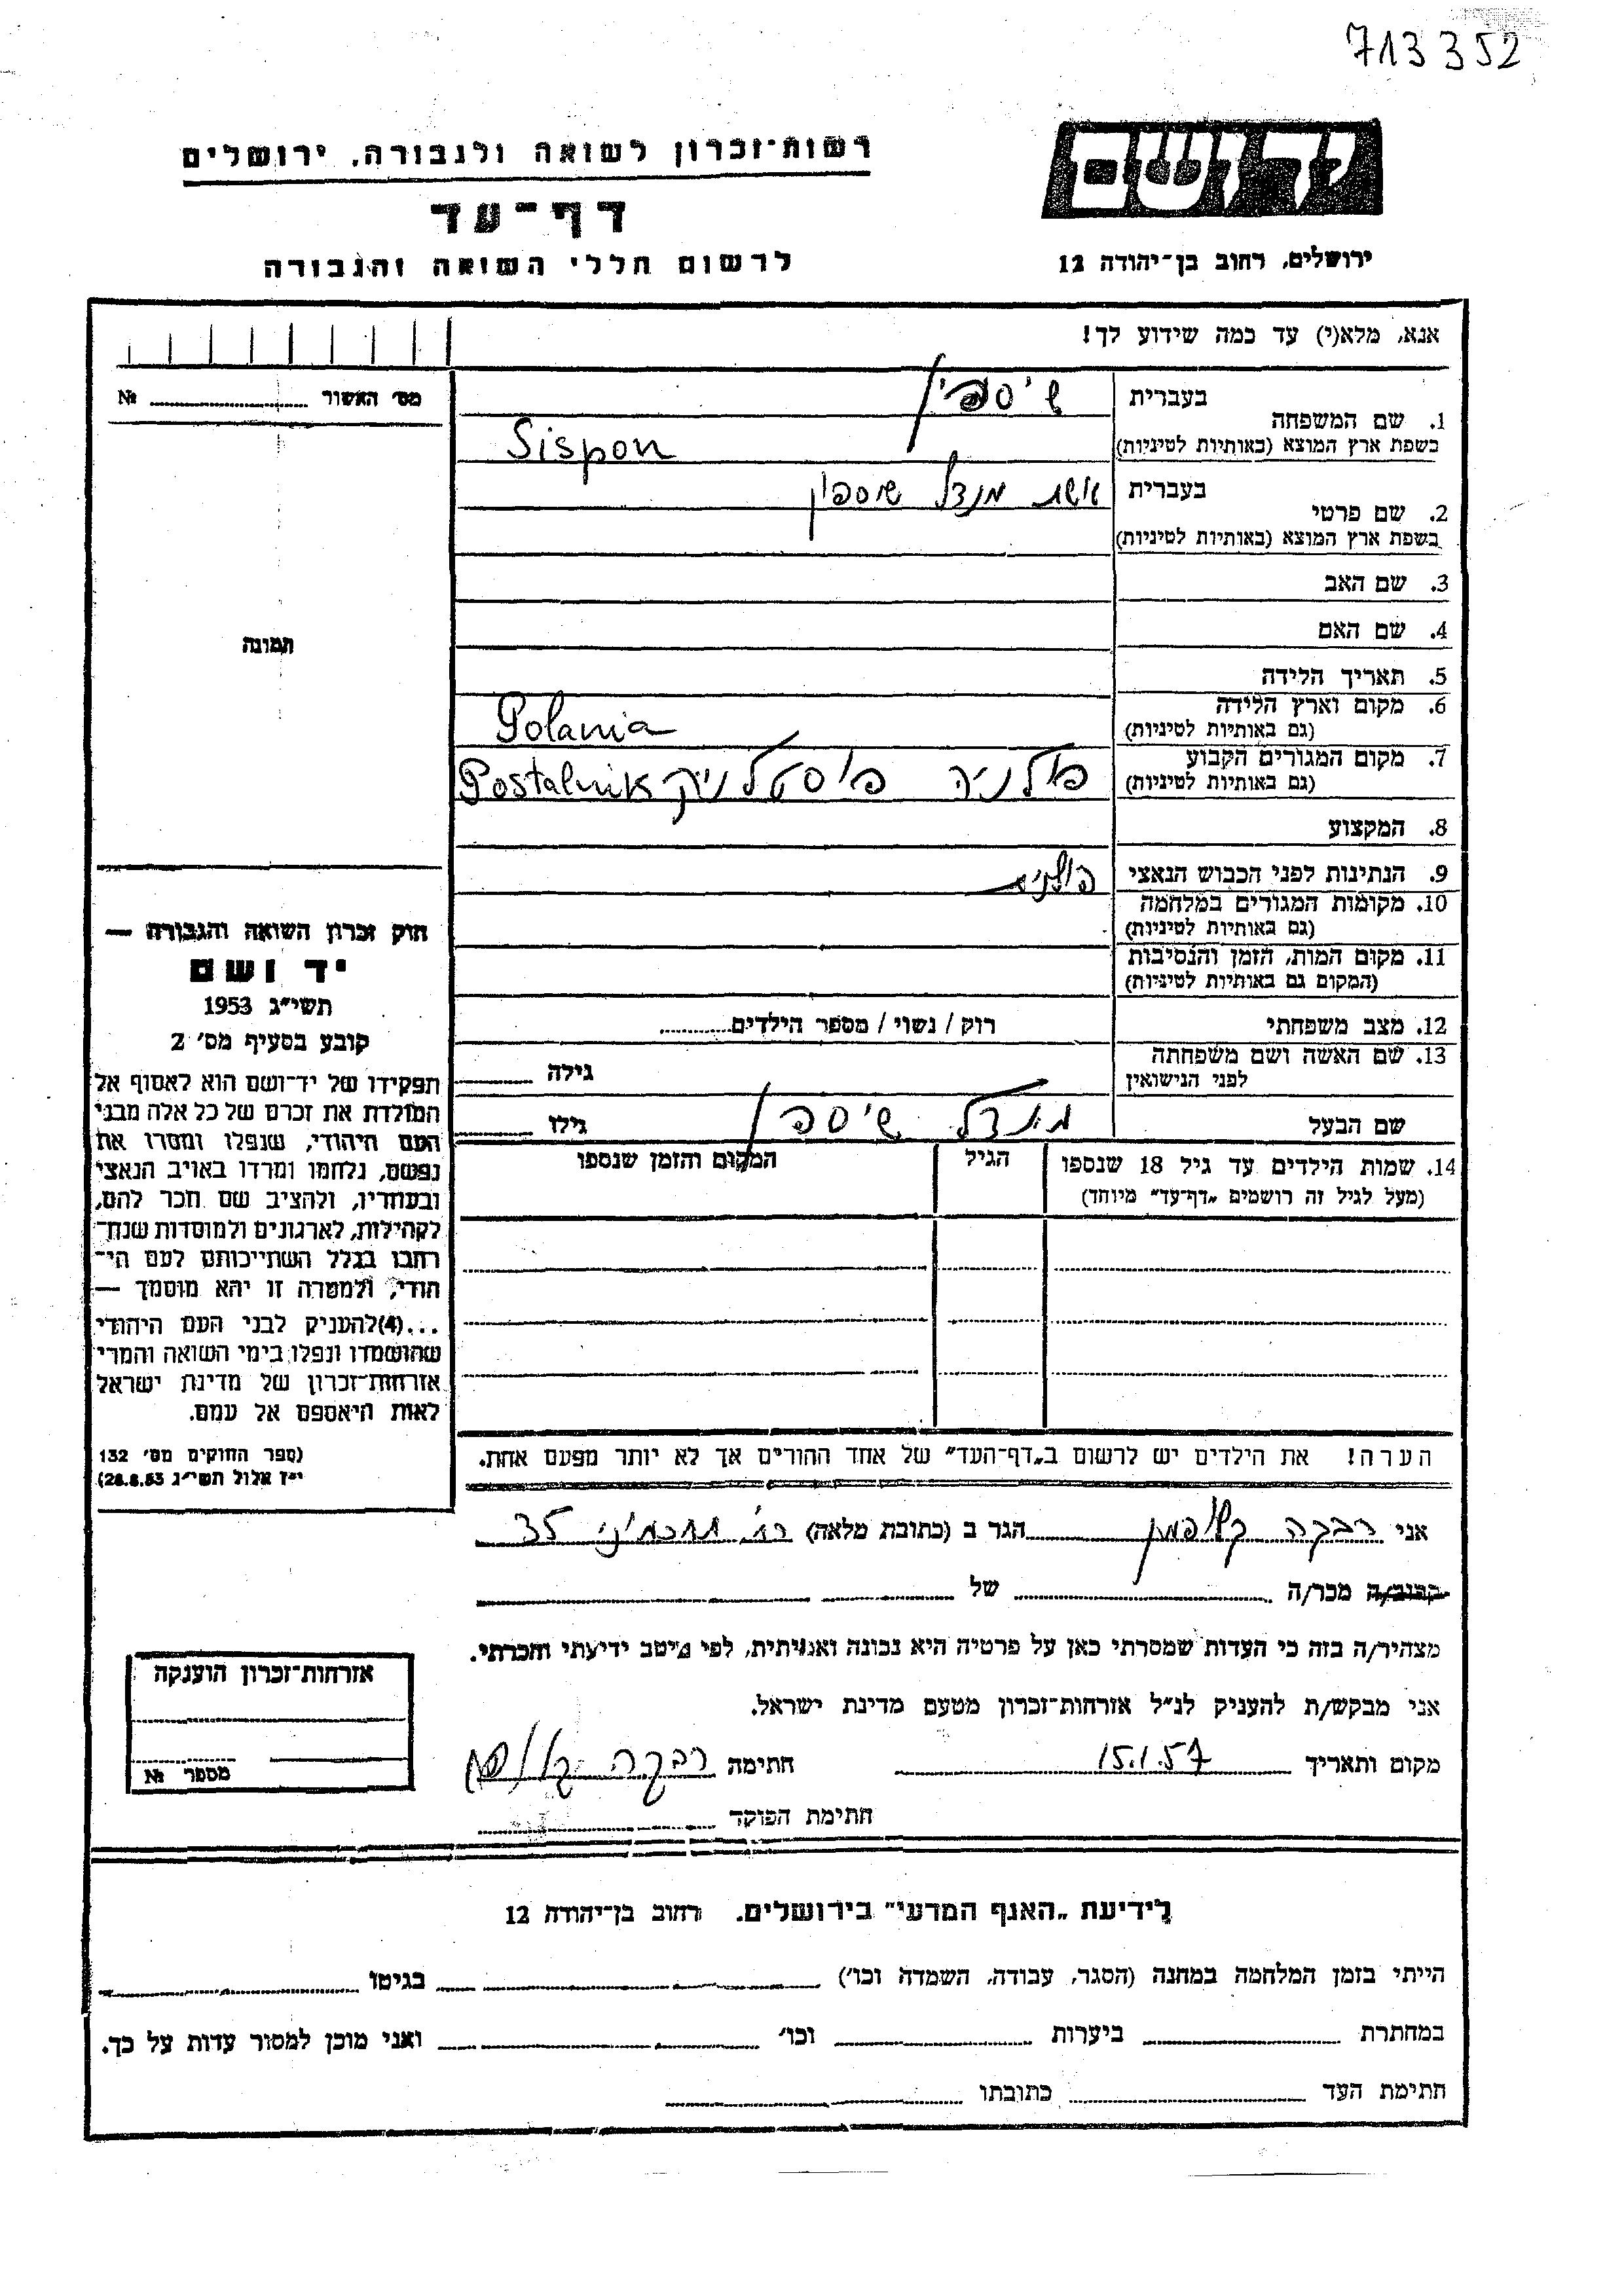 713352
יד ושם
רשות־זכרון לשואה ולגבורה, ירושלים
דף־עד
לרשום חללי השואה והגבורה
ירושלים, רחוב בן־יהודה 12
אנא, מלא(י) עד כמה שידוע לך!
מס׳ האשור № 
תמונה
חוק זכרון השואה והגבורה —
יד ושם
תשי״ג 1953
קובע בסעיף מס׳ 2
תפקידו של יד־ושם הוא לאסוף אל
המולדת את זכרם של כל אלה מבני
העם היהודי, שנפלו ומסרו את
נפשם, נלחמו ומרדו באויב הנאצי
ובעוזריו, ולהציב שם וזכר להם,
לקהילות, לארגונים ולמוסדות שנח־
רבו בגלל השתייכותם לעם הי־
הודי, ולמטרה זו יהא מוסמך —
...(4)להעניק לבני העם היהודי
שהושמדו ונפלו בימי השואה והמרי
אזרחות־זכרון של מדינת ישראל
לאות היאספם אל עמם.
(ספר החוקים מס׳ 132
י״ז אלול תשי״ג 28.8.53)
1. שם המשפחה
בעברית שיספין
בשפת ארץ המוצא (באותיות לטיניות) Sispon
2. שם פרטי
בעברית אשת מנדל שיספון
בשפת ארץ המוצא (באותיות לטיניות)
3. שם האב
4. שם האם
5. תאריך הלידה
6. מקום וארץ הלידה
(גם באותיות לטיניות) Polania
7. מקום המגורים הקבוע
(גם באותיות לטיניות) פולניה פוסטלניק Postalnik
8. המקצוע
9. הנתינות לפני הכבוש הנאצי פולנית
10. מקומות המגורים במלחמה
(גם באותיות לטיניות)
11. מקום המות, הזמן והנסיבות
(המקום גם באותיות לטיניות)
12. מצב משפחתי רוק / נשוי / מספר הילדים
13. שם האשה ושם משפחתה
לפני הנישואין גילה
שם הבעל מנדל שיספון גילו
14. שמות הילדים עד גיל 18 שנספו הגיל המקום והזמן שנספו
(מעל לגיל זה רושמים „דף־עד״ מיוחד)
הערה! את הילדים יש לרשום ב„דף־העד״ של אחד ההורים אך לא יותר מפעם אחת.
אני רבקה הגר ב (כתובת מלאה) רח׳ תחכמוני 35
קרוב/ה מכר/ה של
מצהיר/ה בזה כי העדות שמסרתי כאן על פרטיה היא נכונה ואמיתית, לפי מיטב ידיעתי והכרתי.
אני מבקש/ת להעניק לנ״ל אזרחות־זכרון מטעם מדינת ישראל.
מקום ותאריך 15.1.57 חתימה רבקה
חתימת הפוקד
אזרחות־זכרון הוענקה
מספר №
לידיעת „האגף המדעי״ בירושלים. רחוב בן־יהודה 12
הייתי בזמן המלחמה במחנה (הסגר, עבודה, השמדה וכו׳) בגיטו
במחתרת ביערות וכו׳ ואני מוכן למסור עדות על כך.
חתימת העד כתובתו